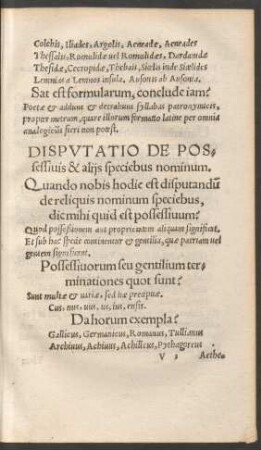 Colchis, Iliades, Argolis, Aeneadæ, Aeneades
Thessalis, Romulidæ uel Romulidæs, Dardanidæ
Thesidæ, Cecropidæ, Thebais, Sicelis inde Sicelides
Lemnias a Lemnos insula, Ausonis ab Ausonia.
Sat est formularum, conclude iam?
Poetæ & addunt & detrahunt syllabas patronymicis,
propter metrum, quare illorum formatio latine per omnia
analogicῶs fieri non potest.
DISPVTATIO DE POS⸗
sessiuis & alijs speciebus nominum.
Quando nobis hodie est disputandū
de reliquis nominum speciebus,
dic mihi quid est possessiuum?
Quod possessionem aut proprietatem aliquam significat.
Et sub hac specie continentur & gentilia, quæ patriam uel
gentem significant.
Possessiuorum seu gentilium ter⸗
minationes quot sunt?
Sunt multæ & uariæ, sed hæ præcipuæ.
Cus, nus, uus, us, ius, ensis.
Da horum exempla?
Gallicus, Germanicus, Romanus, Tullianus
Archiuus, Achiuus, Achillicus, Pythagoreus
V Aethe⸗